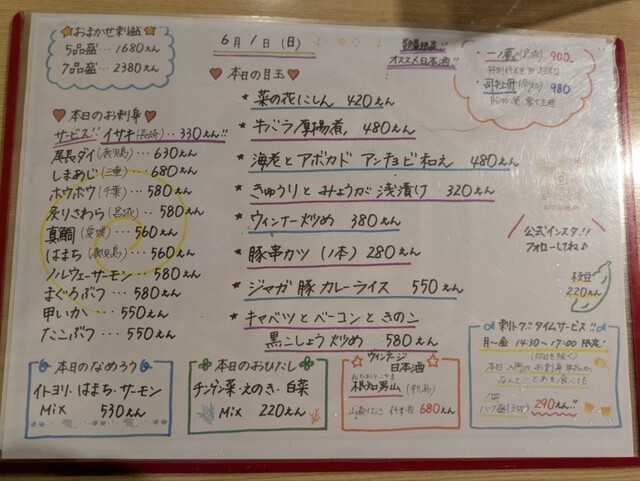 おまかせ刺盛
5品盛…1680えん
7品盛…2380えん
6月1日(日)
数量限定!!
オススメ日本酒!!
900
980
♥本日のお刺身♥
サービス!! イサキ(長崎)‥330えん!!
尾長ダイ(鹿児島)…630えん
しまあじ(三重)…680えん
ホウボウ(千葉)…580えん
炙りさわら(宮城)‥580えん
真鯛(愛媛)…560えん
はまち(鹿児島)…560えん
ノルウェーサーモン…580えん
まぐろぶつ…580えん
甲いか…550えん
たこぶつ…550えん
♥本日の目玉♥
★菜の花にしん 420えん
★牛バラ厚揚煮 480えん
★海老とアボカド アンチョビ和え 480えん
★きゅうりとみょうが浅漬け 320えん
★ウィンナー炒め 380えん
★豚串カツ(1本)280えん
★ジャガ豚カレーライス 550えん
★キャベツとベーコンときのこ
黒こしょう炒め 580えん
公式インスタ!!
フォローしてね♪
枝豆
220えん
本日のなめろう
イトヨリ・はまち・サーモン
Mix 530えん
本日のおひたし
チンゲン菜・えのき・白菜
Mix 220えん
ヴィンテージ
日本酒
根知男山
680えん
刺トク!! タイムサービス!!
月〜金 14:30〜17:00 限定!
290えん!!